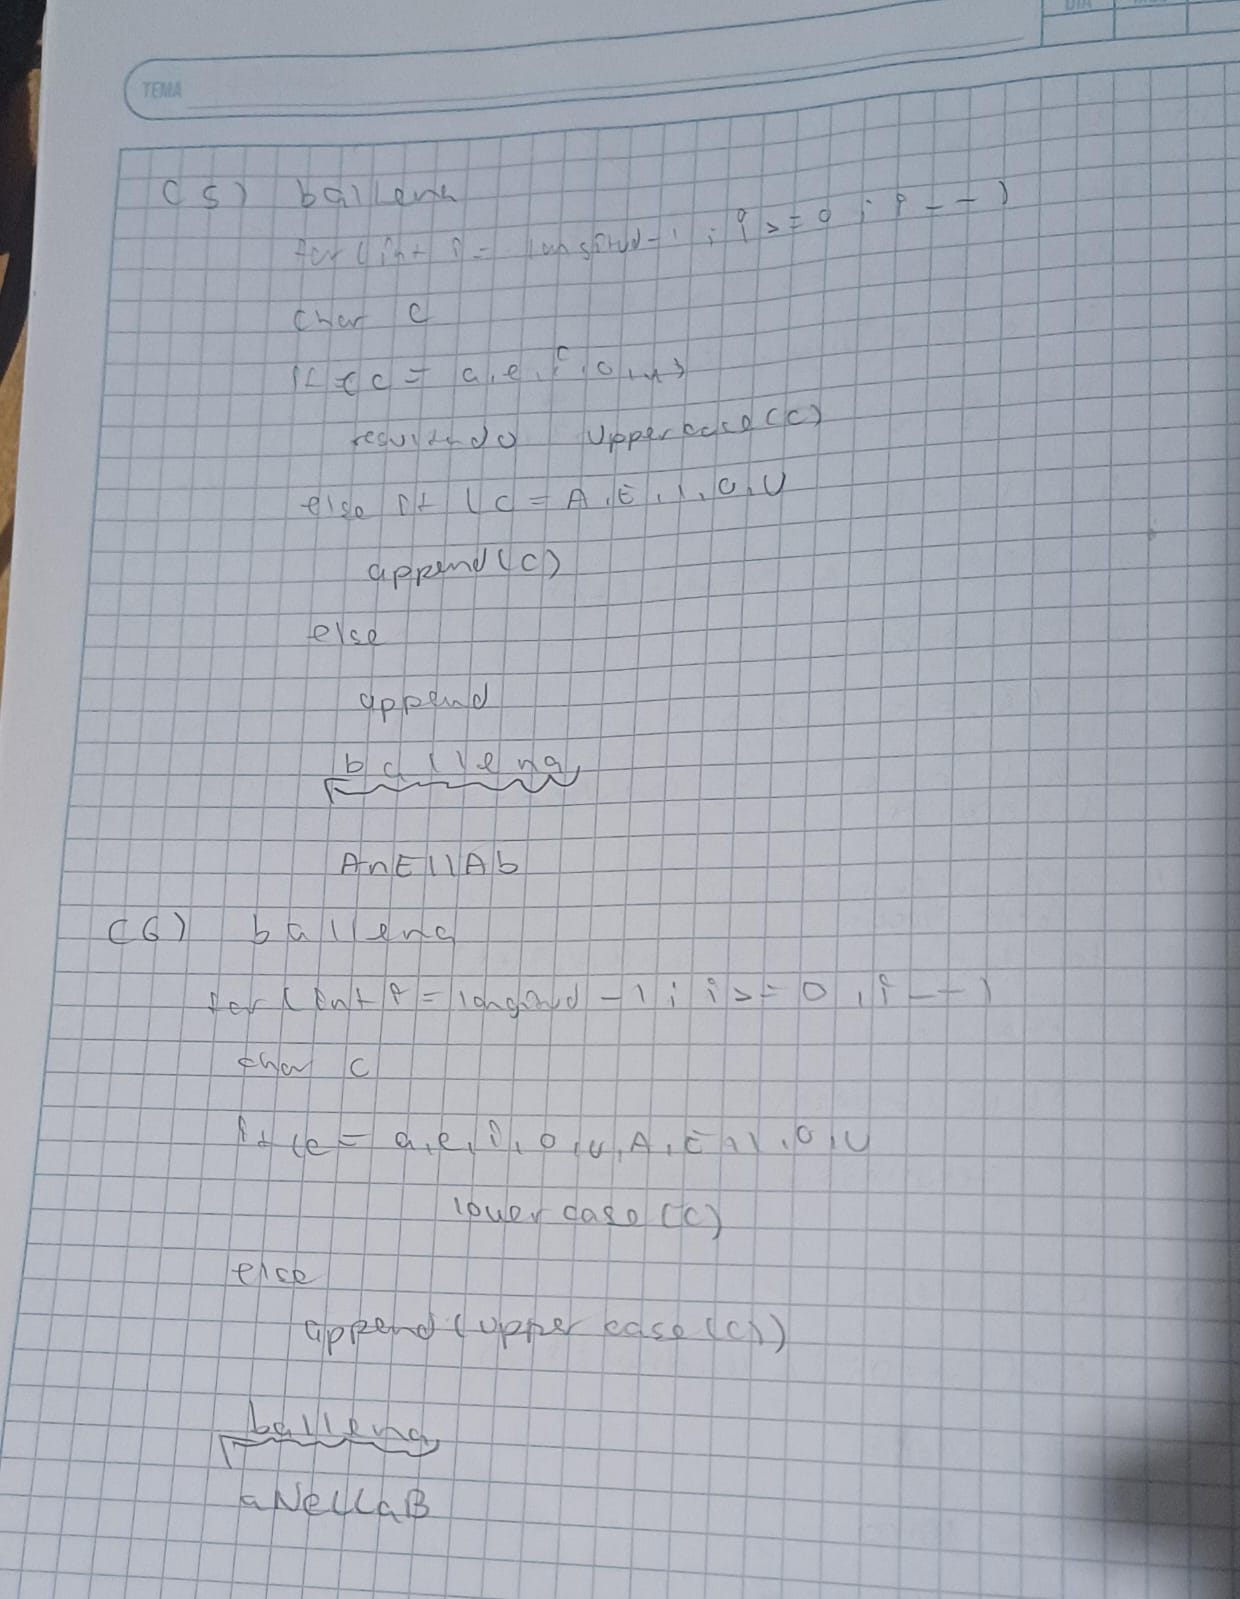 DIA
TEMA
(5) ballena
for (int i = longitud - 1 ; i >= 0 ; i --)
char c
if (c = a, e, i, o, u)
resultado uppercase(c)
else if (c = A, E, I, O, U
append(c)
else
append
ballena
AnEllAb
(6) ballena
for (int i = longitud - 1 ; i >= 0 , i --)
char c
if (c = a, e, i, o, u, A, E, I, O, U
lower case (c)
else
append (upper case (c))
ballena
aNeLLaB